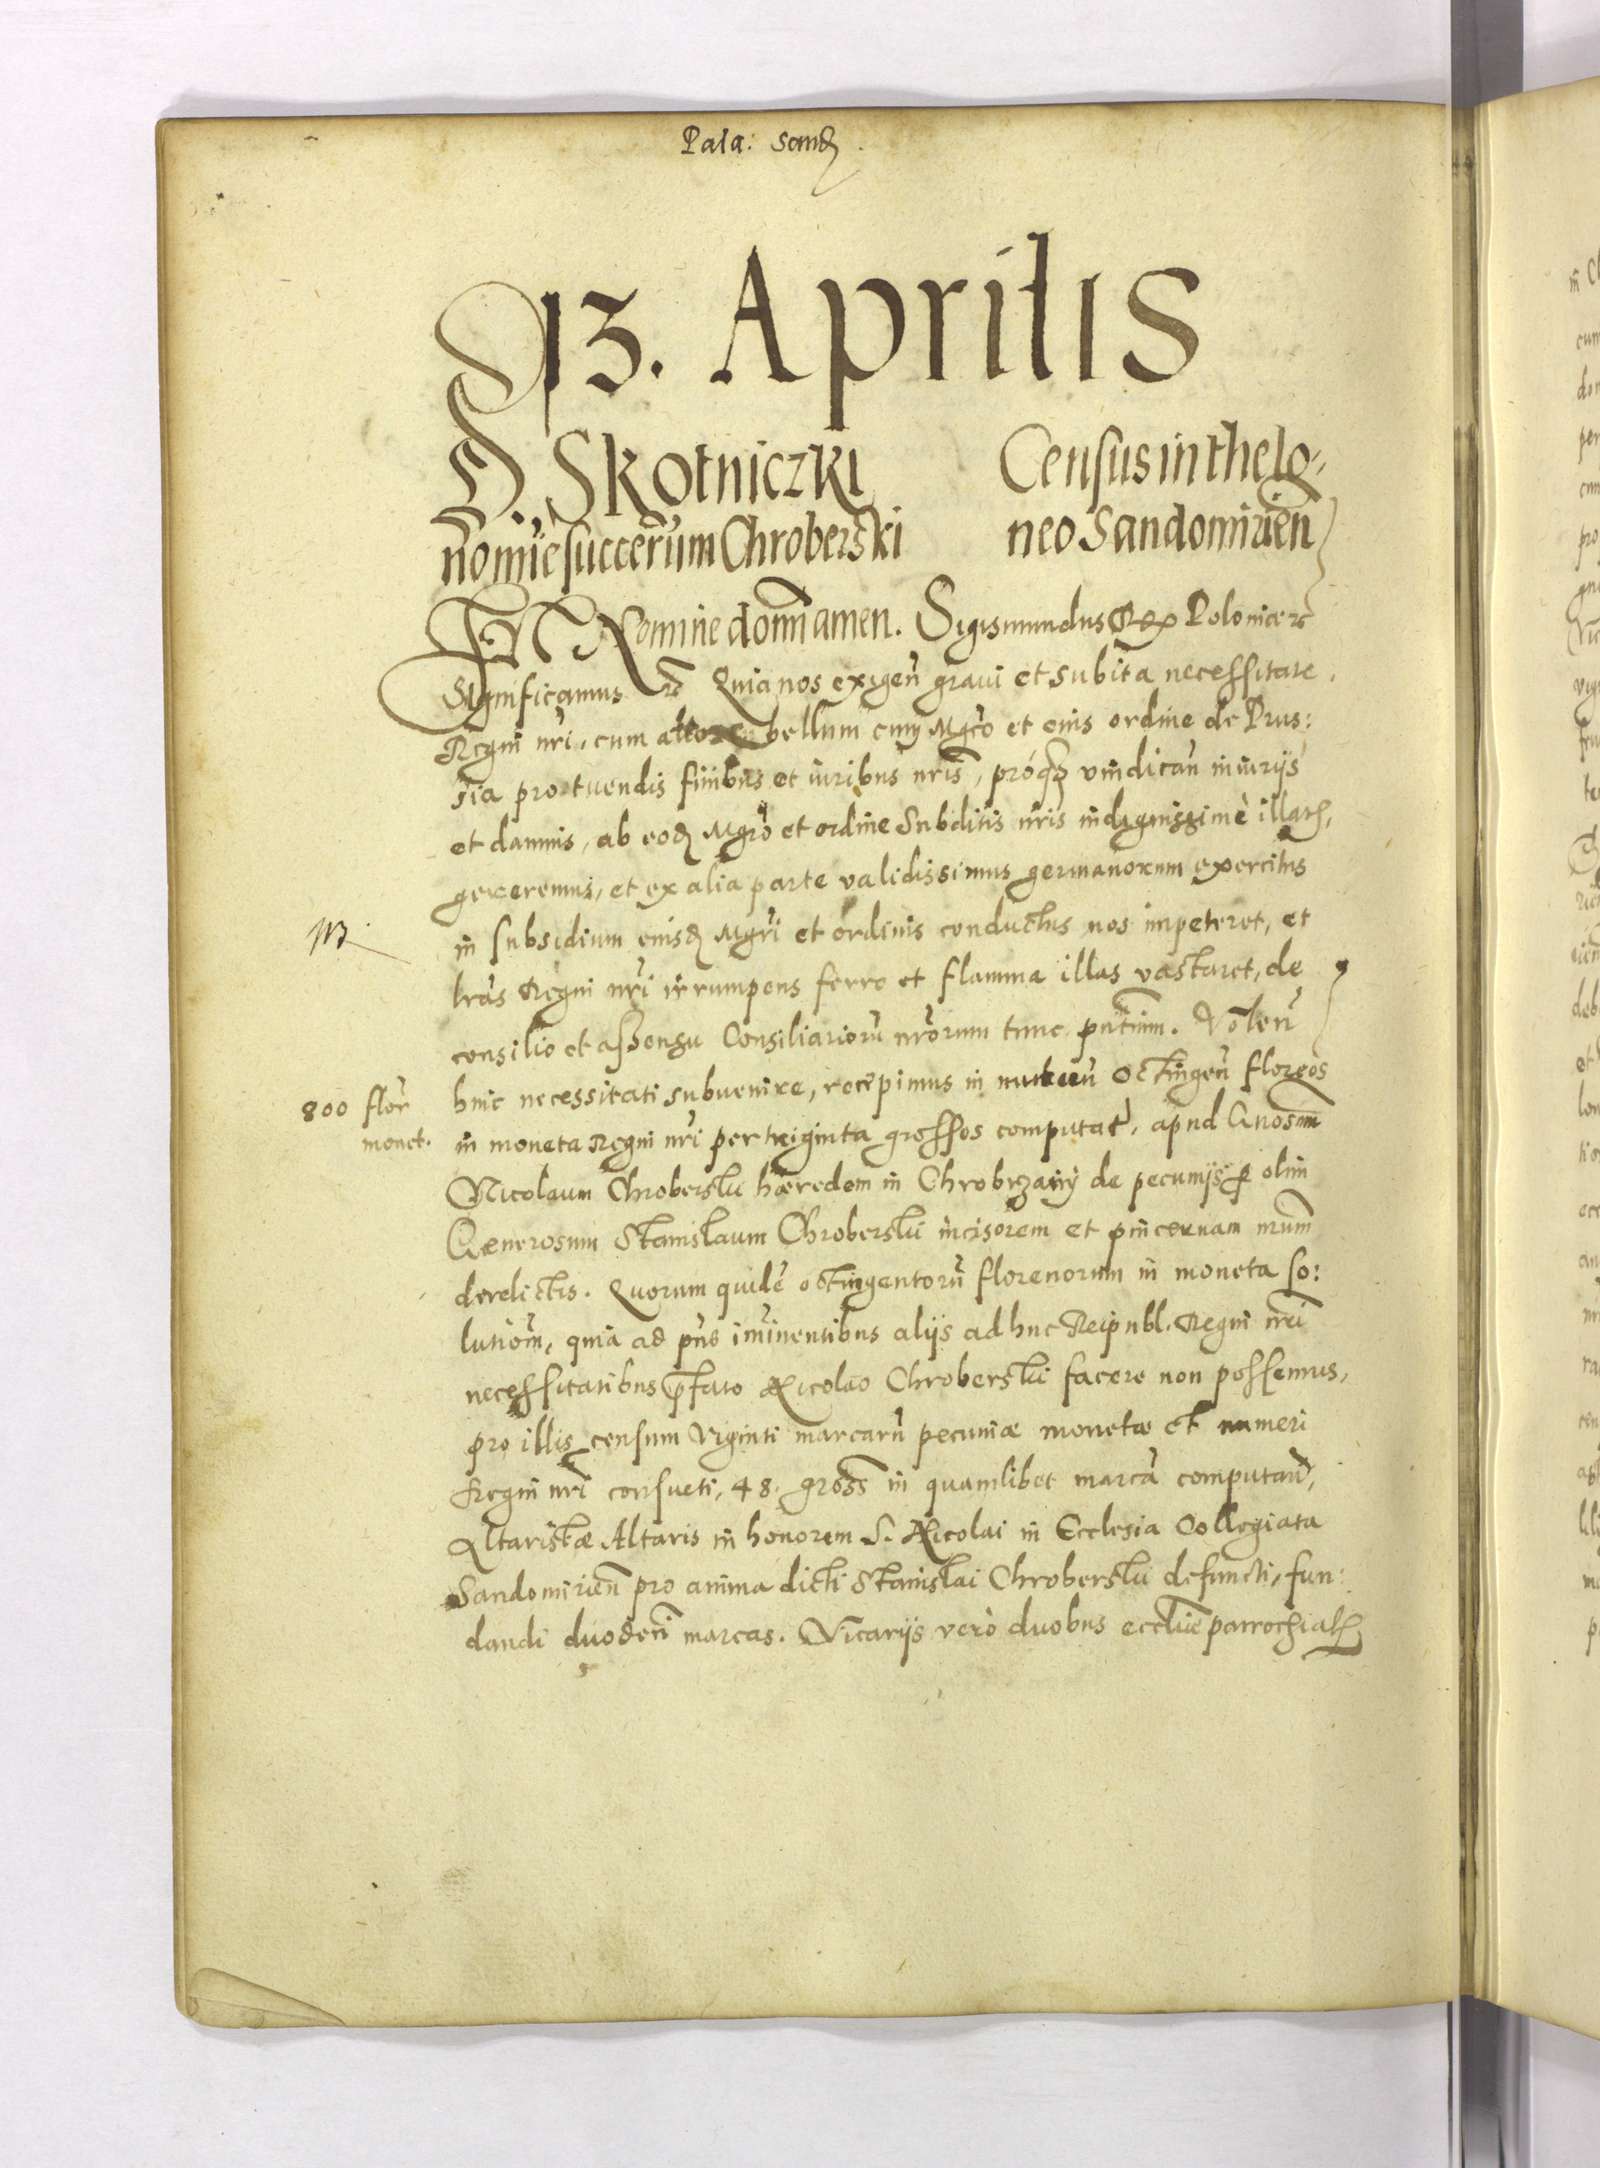 Pala: Sand
13. Aprilis
D. Skotniczki
nomīe succerum Chroberski
Census in thelo-
neo Sandomirien
IN Nomine domī amen. Sigismundus Rex Poloniæ rc
Significamus rc Quia nos exigen̄ graui et subita necessitate
Regni nr̄i, cum bellum cum Mgr̄o et eius ordine de Prus:
sia pro tuendis finibus et iuribus nr̄is, próqz vindican̄ iniurijs
et damnis, ab eod Mgr̄o et ordine Subditis nr̄is indignissimè illat,
gereremus, et ex alia parte validissimus germanorum exercitus
in subsidium eiusd Mgr̄i et ordinis conductus nos impeteret, et
tr̄as Regni nr̄i irrumpens ferro et flamma illas vastaret, de
consilio et assensu Consiliariorū nr̄orum tunc pn̄tium. Volen̄
800 flor̄
monet.
huic necessitati subuenire, recepimus in octingen̄ florēos
in moneta Regni nr̄i per triginta grossos computat̄, apud Gnosum
Nicolaum Chroberski hæredem in Chrobrzany de pecunijs p olim
Generosum Stanislaum Chroberski incisorem et pincernam nr̄um
derelictis. Quorum quidē octingentorū florenorum in moneta so:
lutiōm, quia ad pn̄s im̄inentibus alijs ad huc Reipubl. Regni nr̄i
necessitatibus p̄fato Nicolao Chroberski facere non possemus,
pro illis censum viginti marcarū pecuniæ monetæ et numeri
Regni nr̄i consueti, 48. gross in quamlibet marcā computan̄,
Altaristæ Altaris in honorem S. Nicolai in Ecclesia Collegiata
Sandomirien̄ pro anima dicti Stanislai Chroberski defuncti, fun:
dandi duodecī marcas. Vicarijs verò duobus eccliæ parrochial